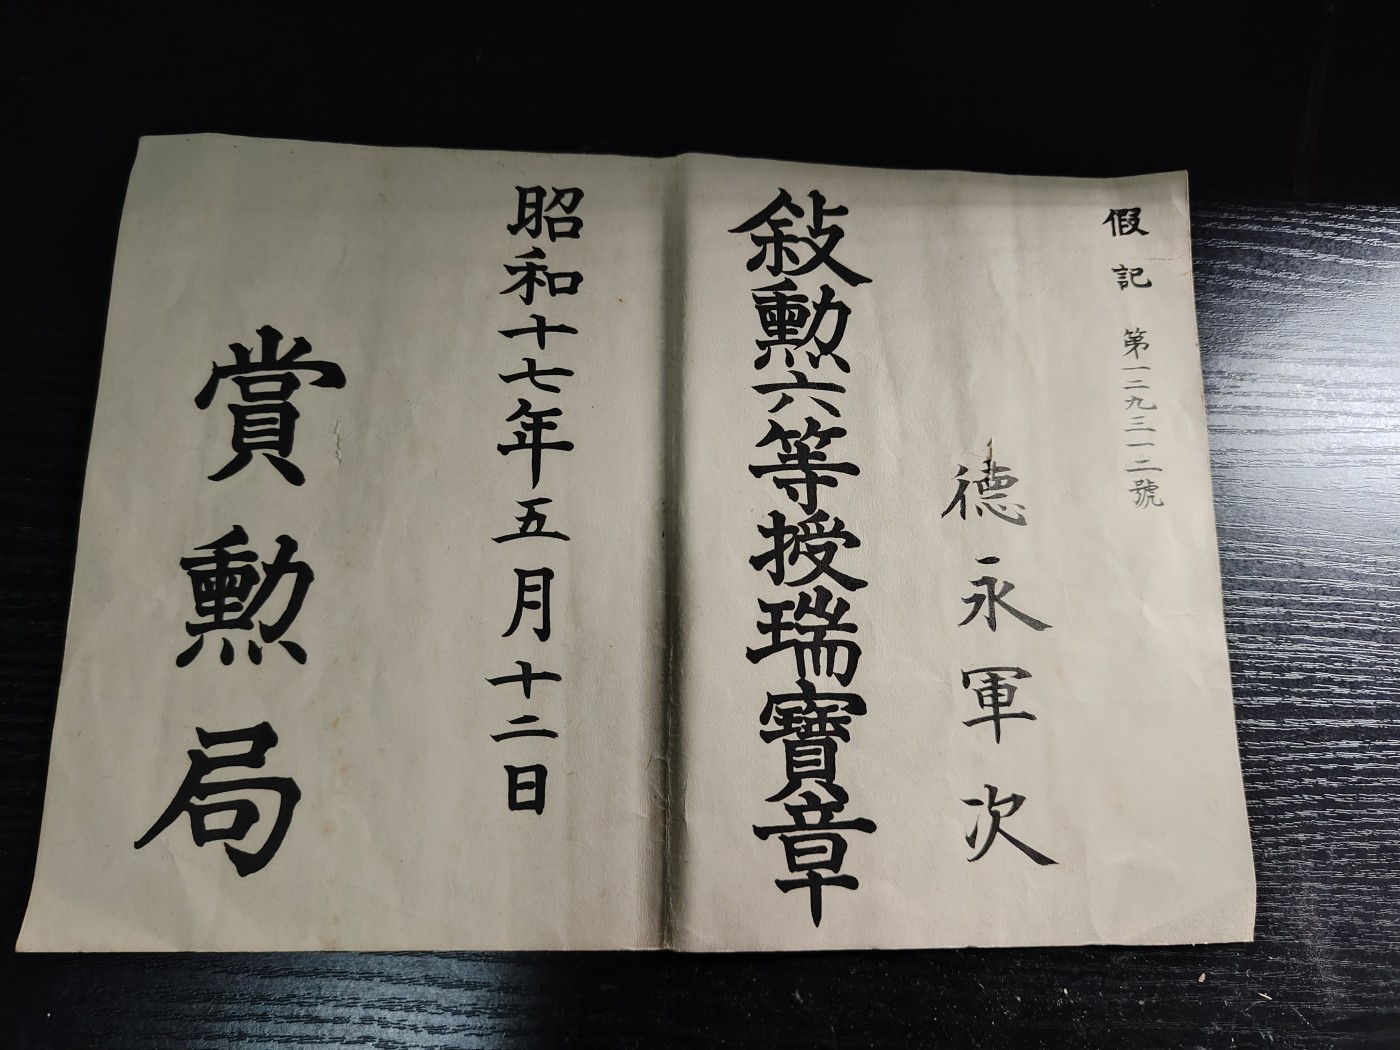 假記 第一二九三一二號
德永軍次
敍勳六等授瑞寶章
昭和十七年五月十二日
賞勳局